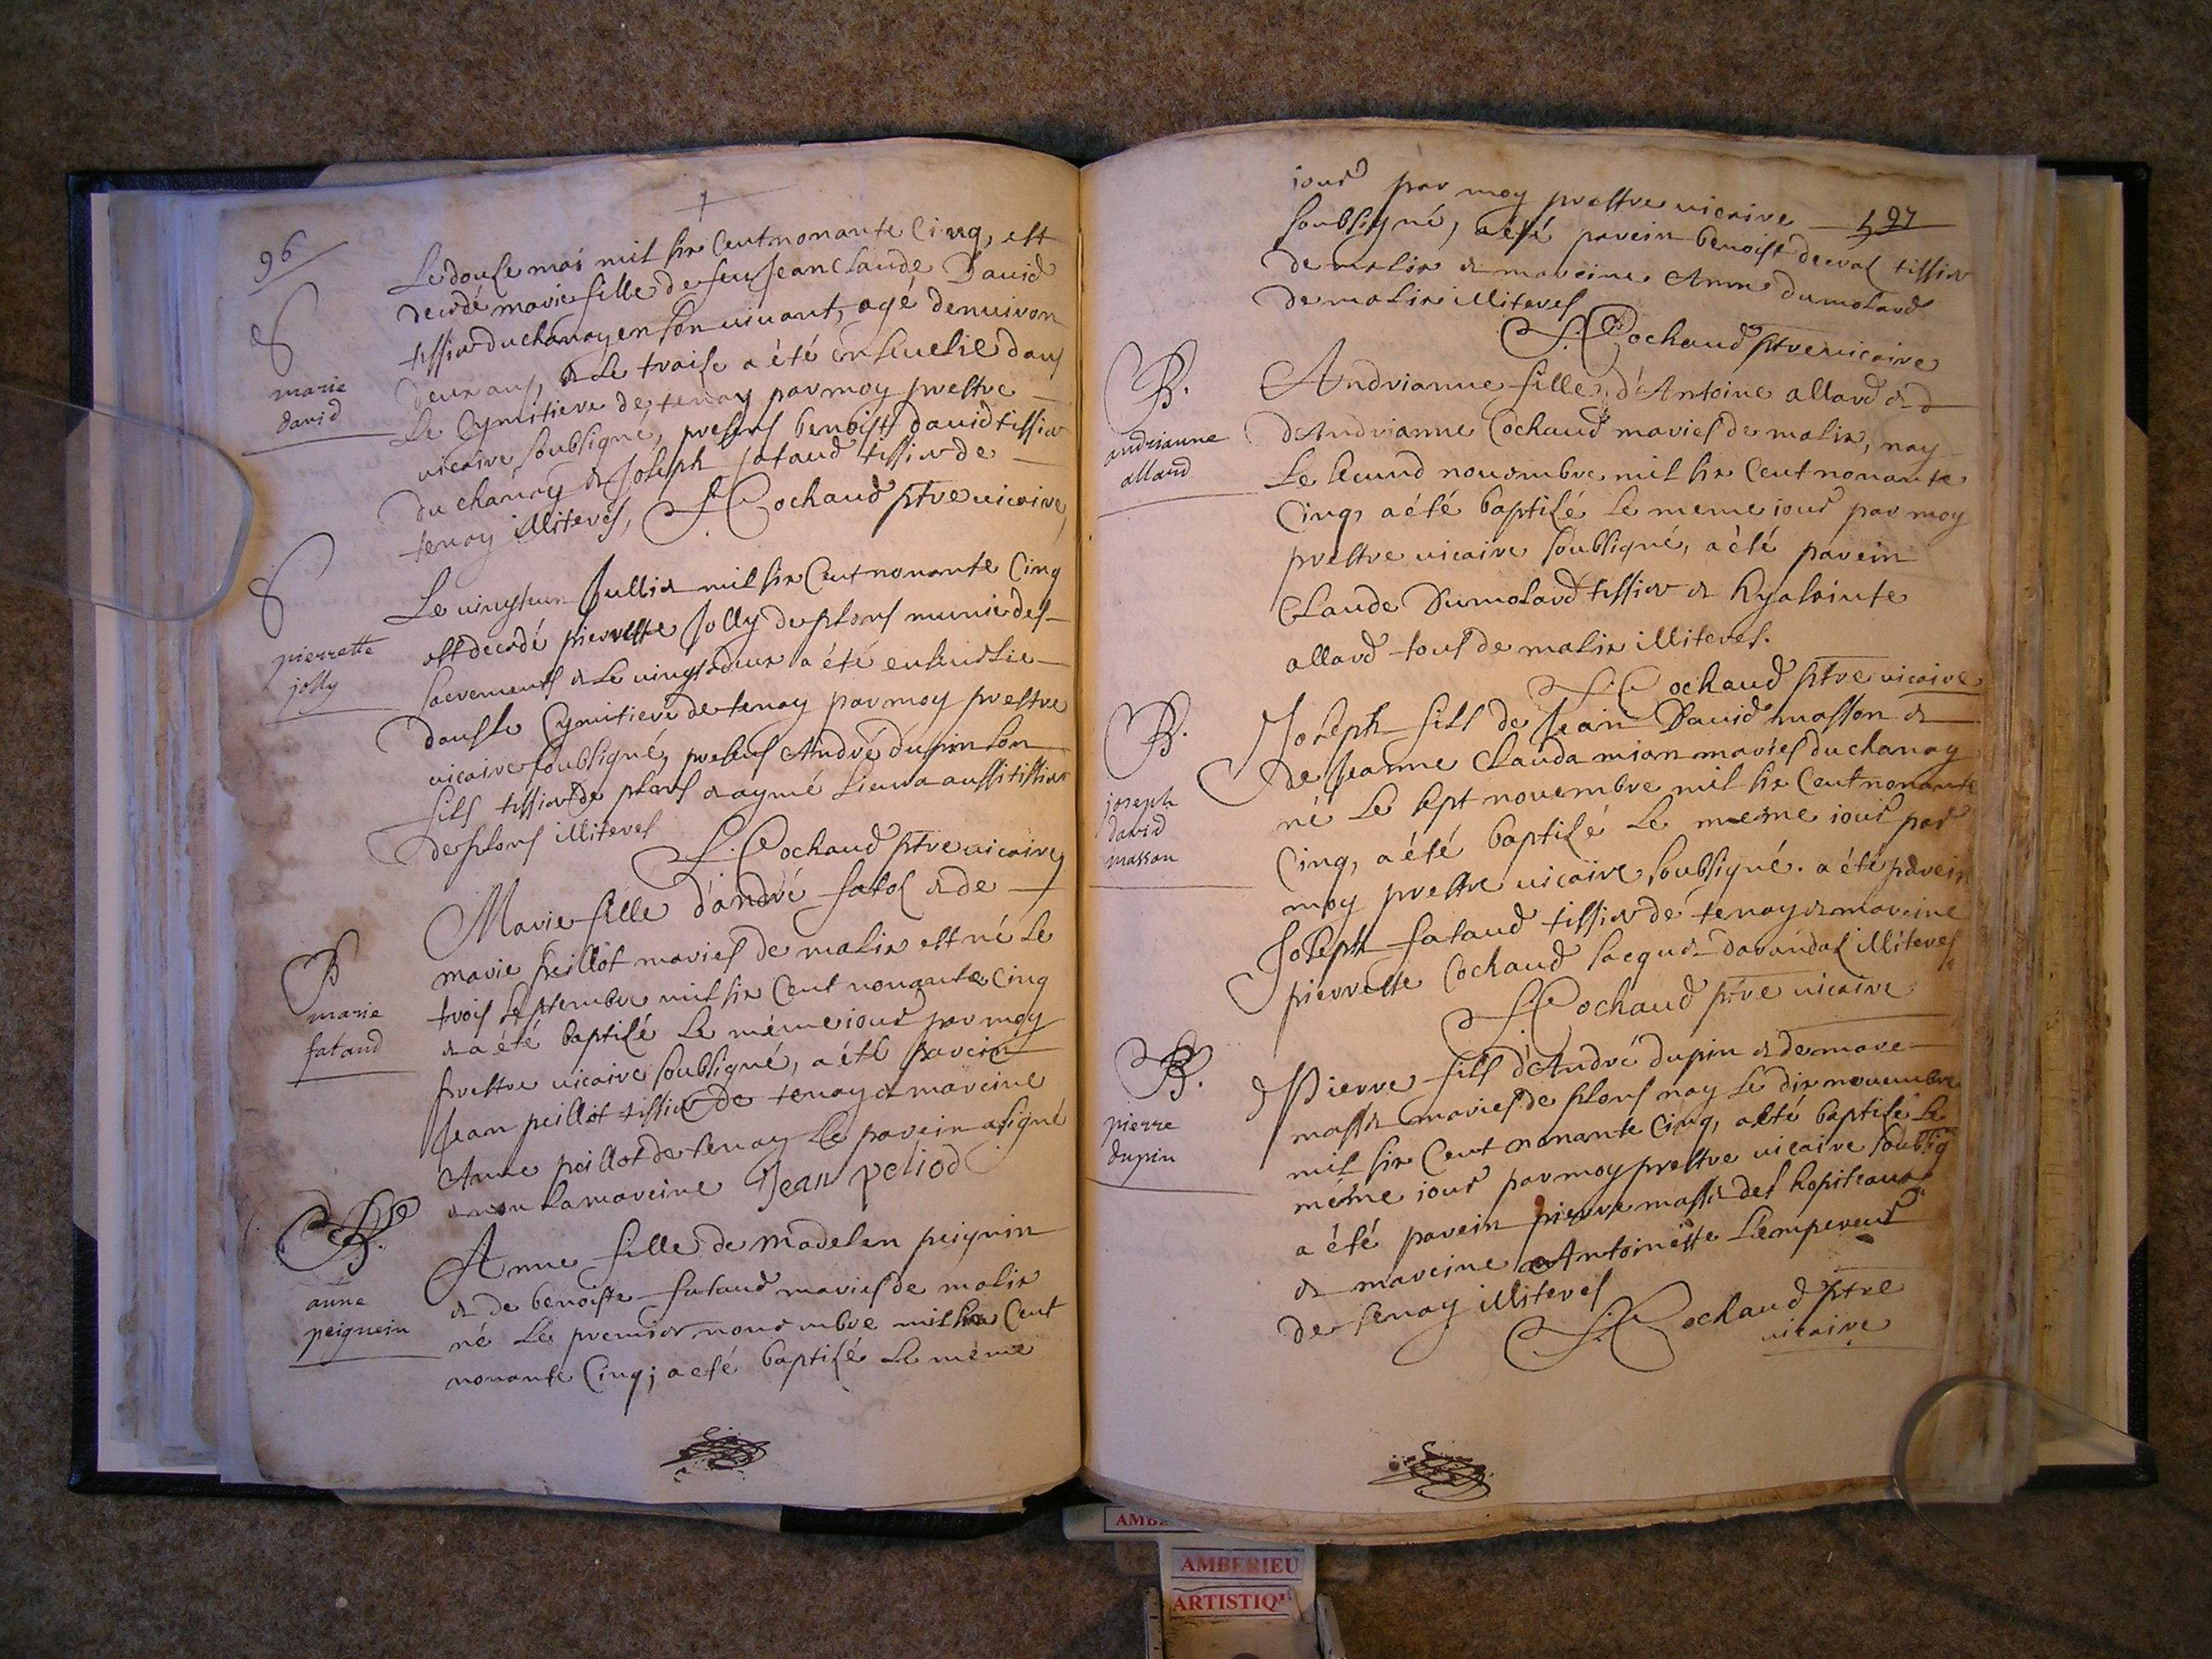 96
Le douse mai mil six Cent nonante Cinq, est
decedé marie fille de feu Jean Claude David
tissier du chanay en son vivant, agé denuiron
deux ans, & Le traise a été enseuelie dans
Le Cymitiere de tenay par moy prestre
vicaire soubsigné, presens benoist david tissier
du chanay & Joseph fataud tissier de
tenay illiterés, Cochaud ptre vicaire
marie
david
Le vingt un Jullie mil six Cent nonante Cinq
est decedé pierrette Jolly de plons munie des
sacrements & Le vingt deux a été enseuelie
dans Le Cymitiere de tenay par moy prestre
vicaire soubsigné, presens André dupin son
fils tissier de plons & aymé aussi tissier
de plons illiteres
Cochaud ptre vicaire
pierrette
jolly
Marie fille d'andré & de
marie peillot maries de malix est né Le
trois septembre mil six Cent nonante Cinq
& a été baptisé Le même iour par moy
prestre vicaire soubsigné, a été parein
Jean peillot tissier de tenay & mareine
Anne peillot de tenay Le parein a signé
& non La mareine Jean peliod
B
marie
fataud
Anne fille de madelen peignin
& de benoiste fataud maries de malix
né Le premier nouembre mil six Cent
nonante Cinq; a été baptisé Le même
B.
anne
peignein
97
iour par moy prestre vicaire
soubsigné, a été parein benoist tissier
de malix & mareine Anne dumolard
de malix illiteres
Cochaud ptre vicaire
B.
andrianne
allard
Andrianne fille d'Antoine allard &
d'Andrianne Cochaud maries de malix, nay
Le second nouembre mil six Cent nonante
Cinq, a été baptisé Le meme iour par moy
prestre vicaire soubsigné, a été parein
Claude Dumolard tissier & hyasainte
allard tous de malix illiteres.
Cochaud ptre vicaire
B.
joseph
david
masson
Joseph fils de Jean David masson &
de Jeanne Clauda mian maries du chanay
né Le sept nouembre mil six Cent nonante
Cinq, a été baptisé Le meme iour par
moy prestre vicaire soubsigné. a été parein
Joseph fataud tissier de tenay & mareine
pierrette Cochaud illiteres
Cochaud ptre vicaire
B.
pierre
dupin
Pierre fils d'André dupin & de
masse maries de plons nay Le dix nouembre
mil six Cent nonante Cinq, a été baptisé Le
même iour par moy prestre vicaire soubsig
a été parein pierre masse des hopiteaux
& mareine Antoinette L'empereur
de tenay illiteres
Cochaud ptre
vicaire
AMBERIEU
ARTISTIQ